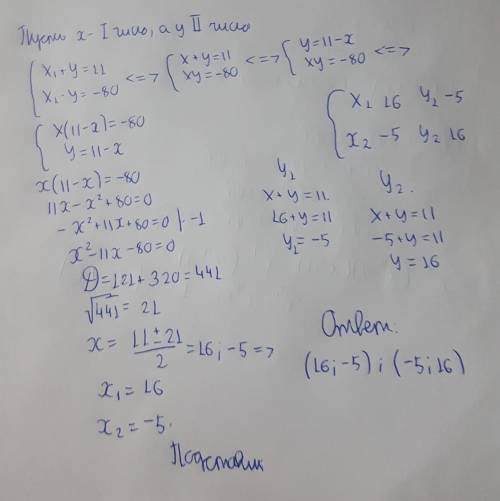 Пусть x - I число, а y II число
{ x₁ + y = 11 <=> { x + y = 11 <=> { y = 11 - x <=>
{ x₁ · y = -80 { xy = -80 { xy = -80
{ x(11 - x) = -80
{ y = 11 - x
x(11 - x) = -80
11x - x² + 80 = 0
- x² + 11x + 80 = 0 | · -1
x² - 11x - 80 = 0
D = 121 + 320 = 441
√441 = 21
x = (11 ± 21)/2 = 16; -5 =>
x₁ = 16
x₂ = -5.
Подставим
{ x₁ 16 y₁ -5
{ x₂ -5 y₂ 16
y₁
x + y = 11.
16 + y = 11
y₁ = -5
y₂.
x + y = 11
-5 + y = 11
y = 16
Ответ:
(16; -5) ; (-5; 16)